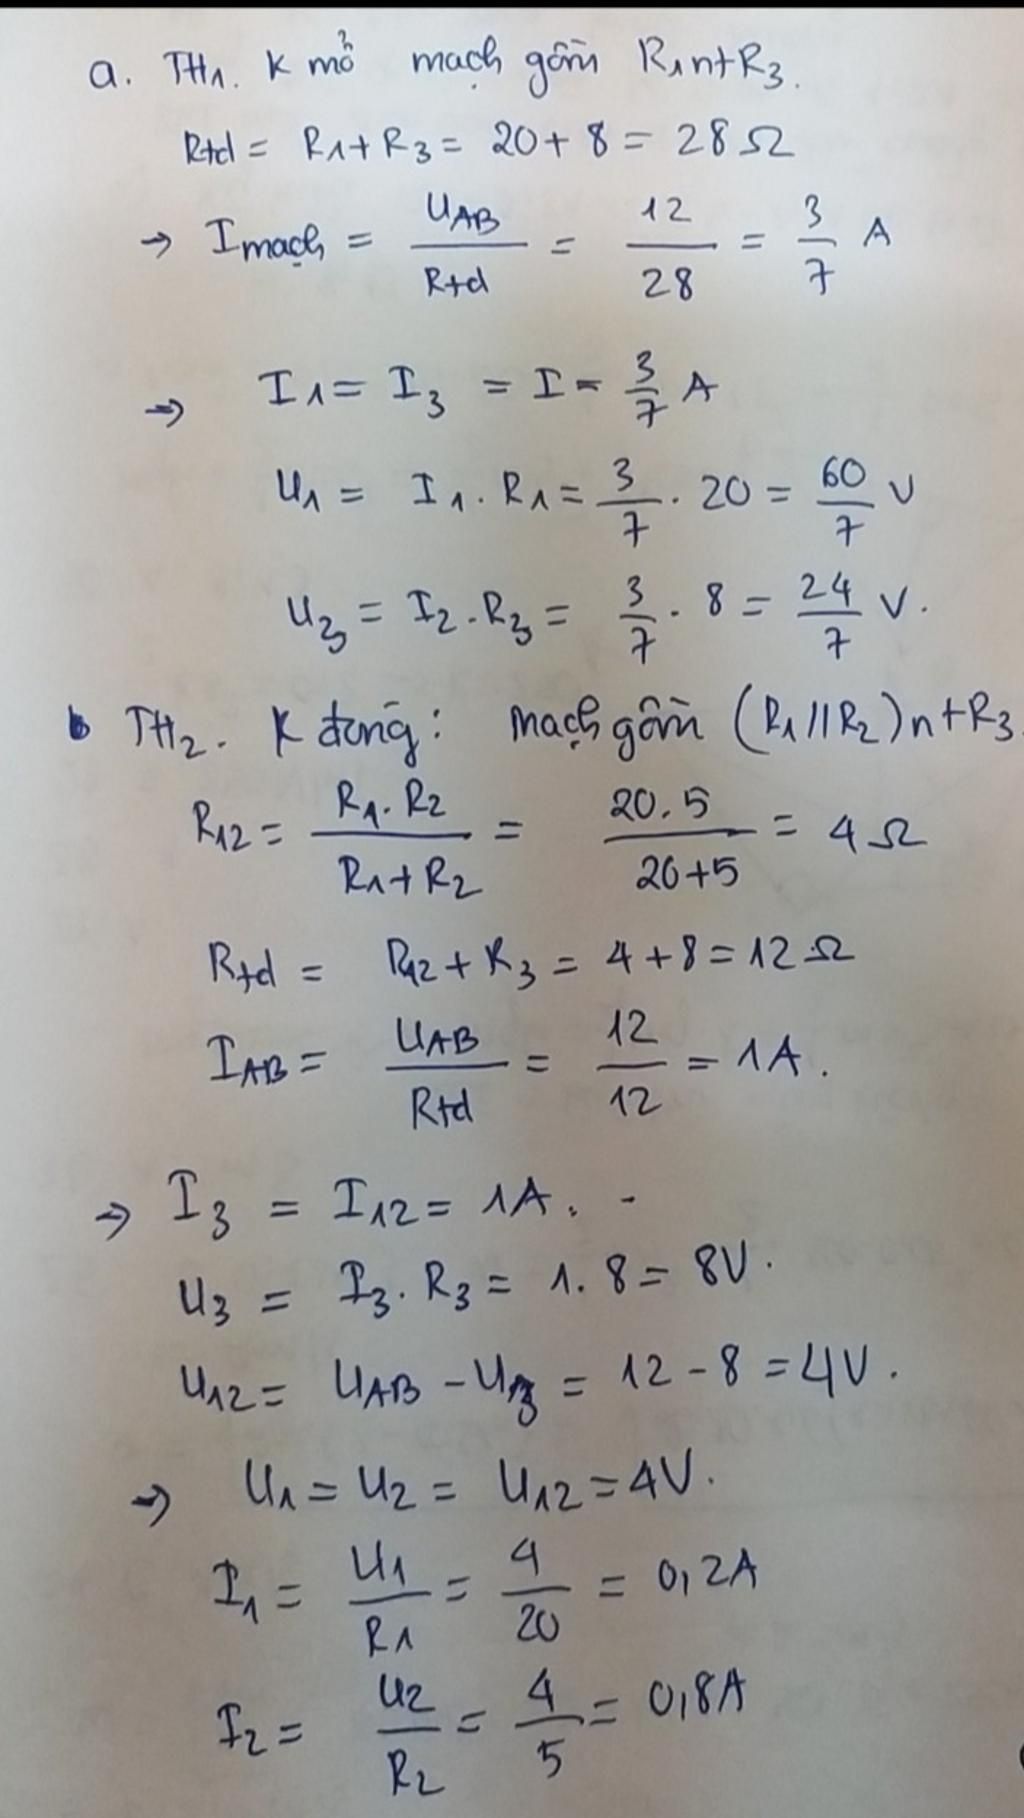 a. TH1. K mở mạch gồm R1 nt R3.
Rtd = R1 + R3 = 20 + 8 = 28 Ω
→ Imạch = UAB / Rtd = 12 / 28 = 3/7 A
→ I1 = I3 = I = 3/7 A
U1 = I1 . R1 = 3/7 . 20 = 60/7 V
U3 = I2 . R3 = 3/7 . 8 = 24/7 V.
b TH2. K đóng: mạch gồm (R1 // R2) nt R3.
R12 = R1 . R2 / R1 + R2 = 20 . 5 / 20 + 5 = 4 Ω
Rtd = R12 + R3 = 4 + 8 = 12 Ω
IAB = UAB / Rtd = 12 / 12 = 1A.
→ I3 = I12 = 1A.
U3 = I3 . R3 = 1 . 8 = 8V.
U12 = UAB - U3 = 12 - 8 = 4V.
→ U1 = U2 = U12 = 4V.
I1 = U1 / R1 = 4 / 20 = 0,2A
I2 = U2 / R2 = 4 / 5 = 0,8A